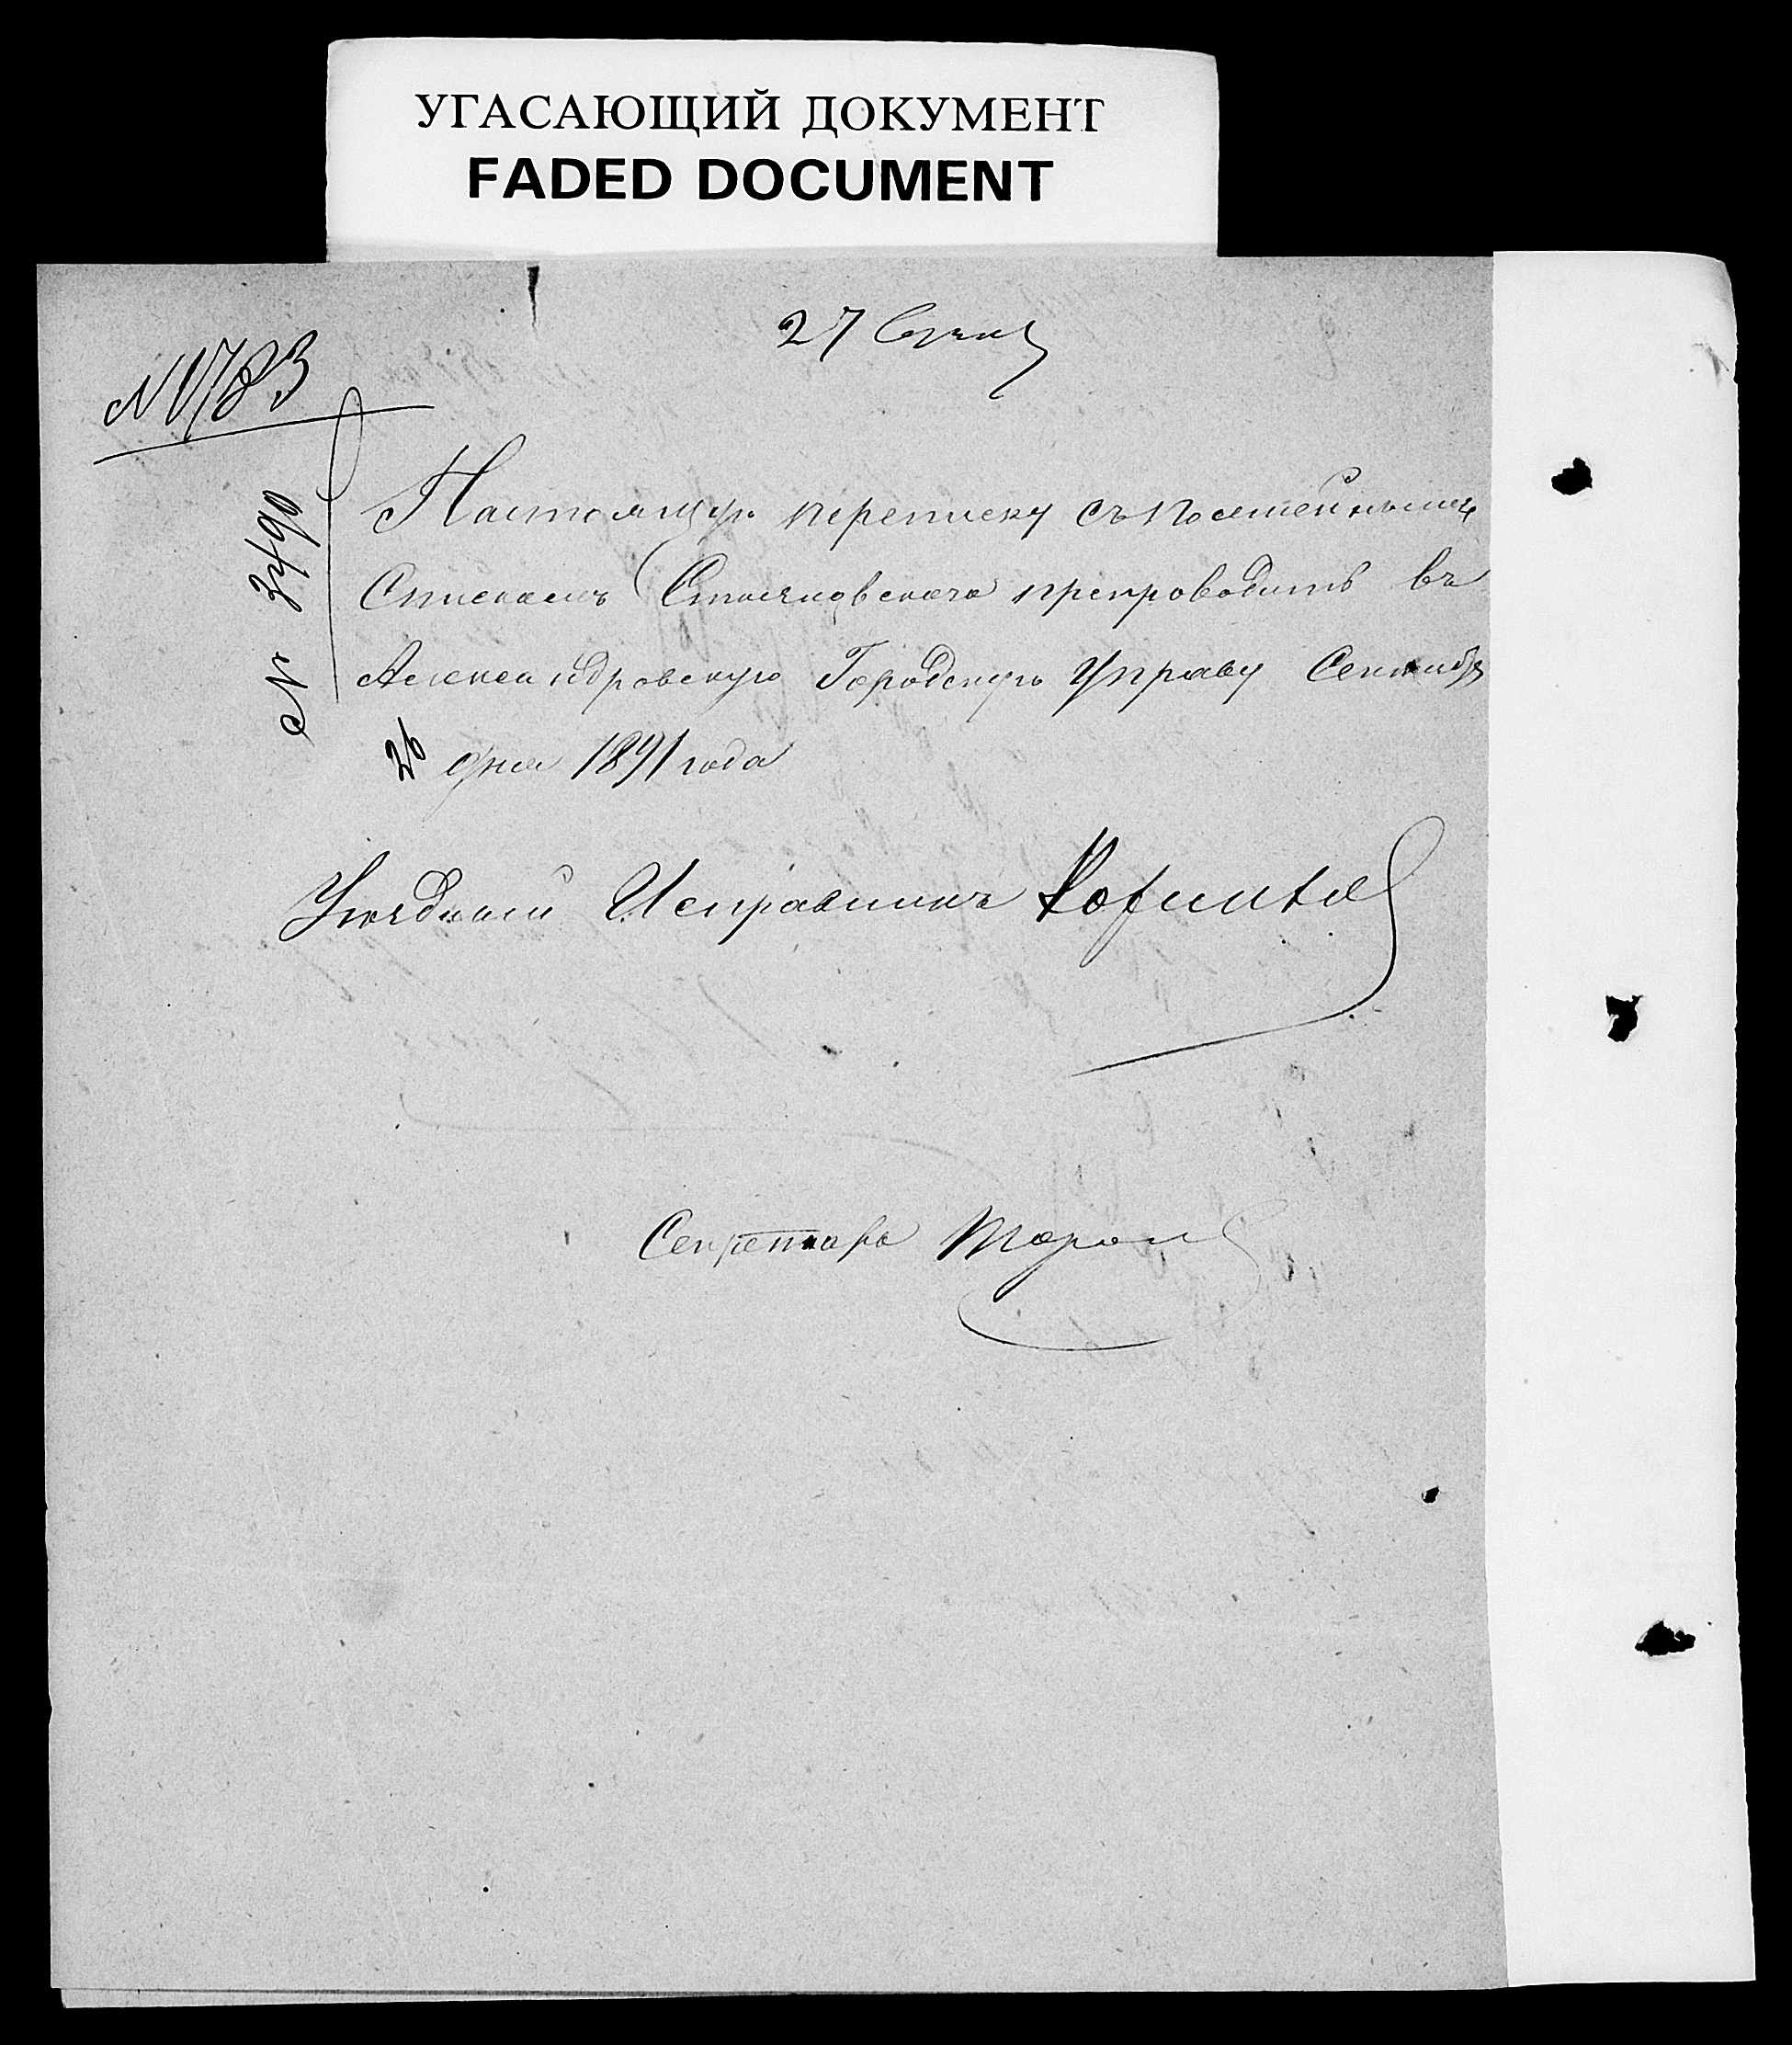 УГАСАЮЩИЙ ДОКУМЕНТ
FADED DOCUMENT
27 Сент
№ 1783
№ 3490
Настоящую переписку съ посемейнымъ
Спискомъ препроводить въ
Александровскую Городскую Управу Сентября
26 дня 1891 года
Уѣздный Исправникъ
Секретарь